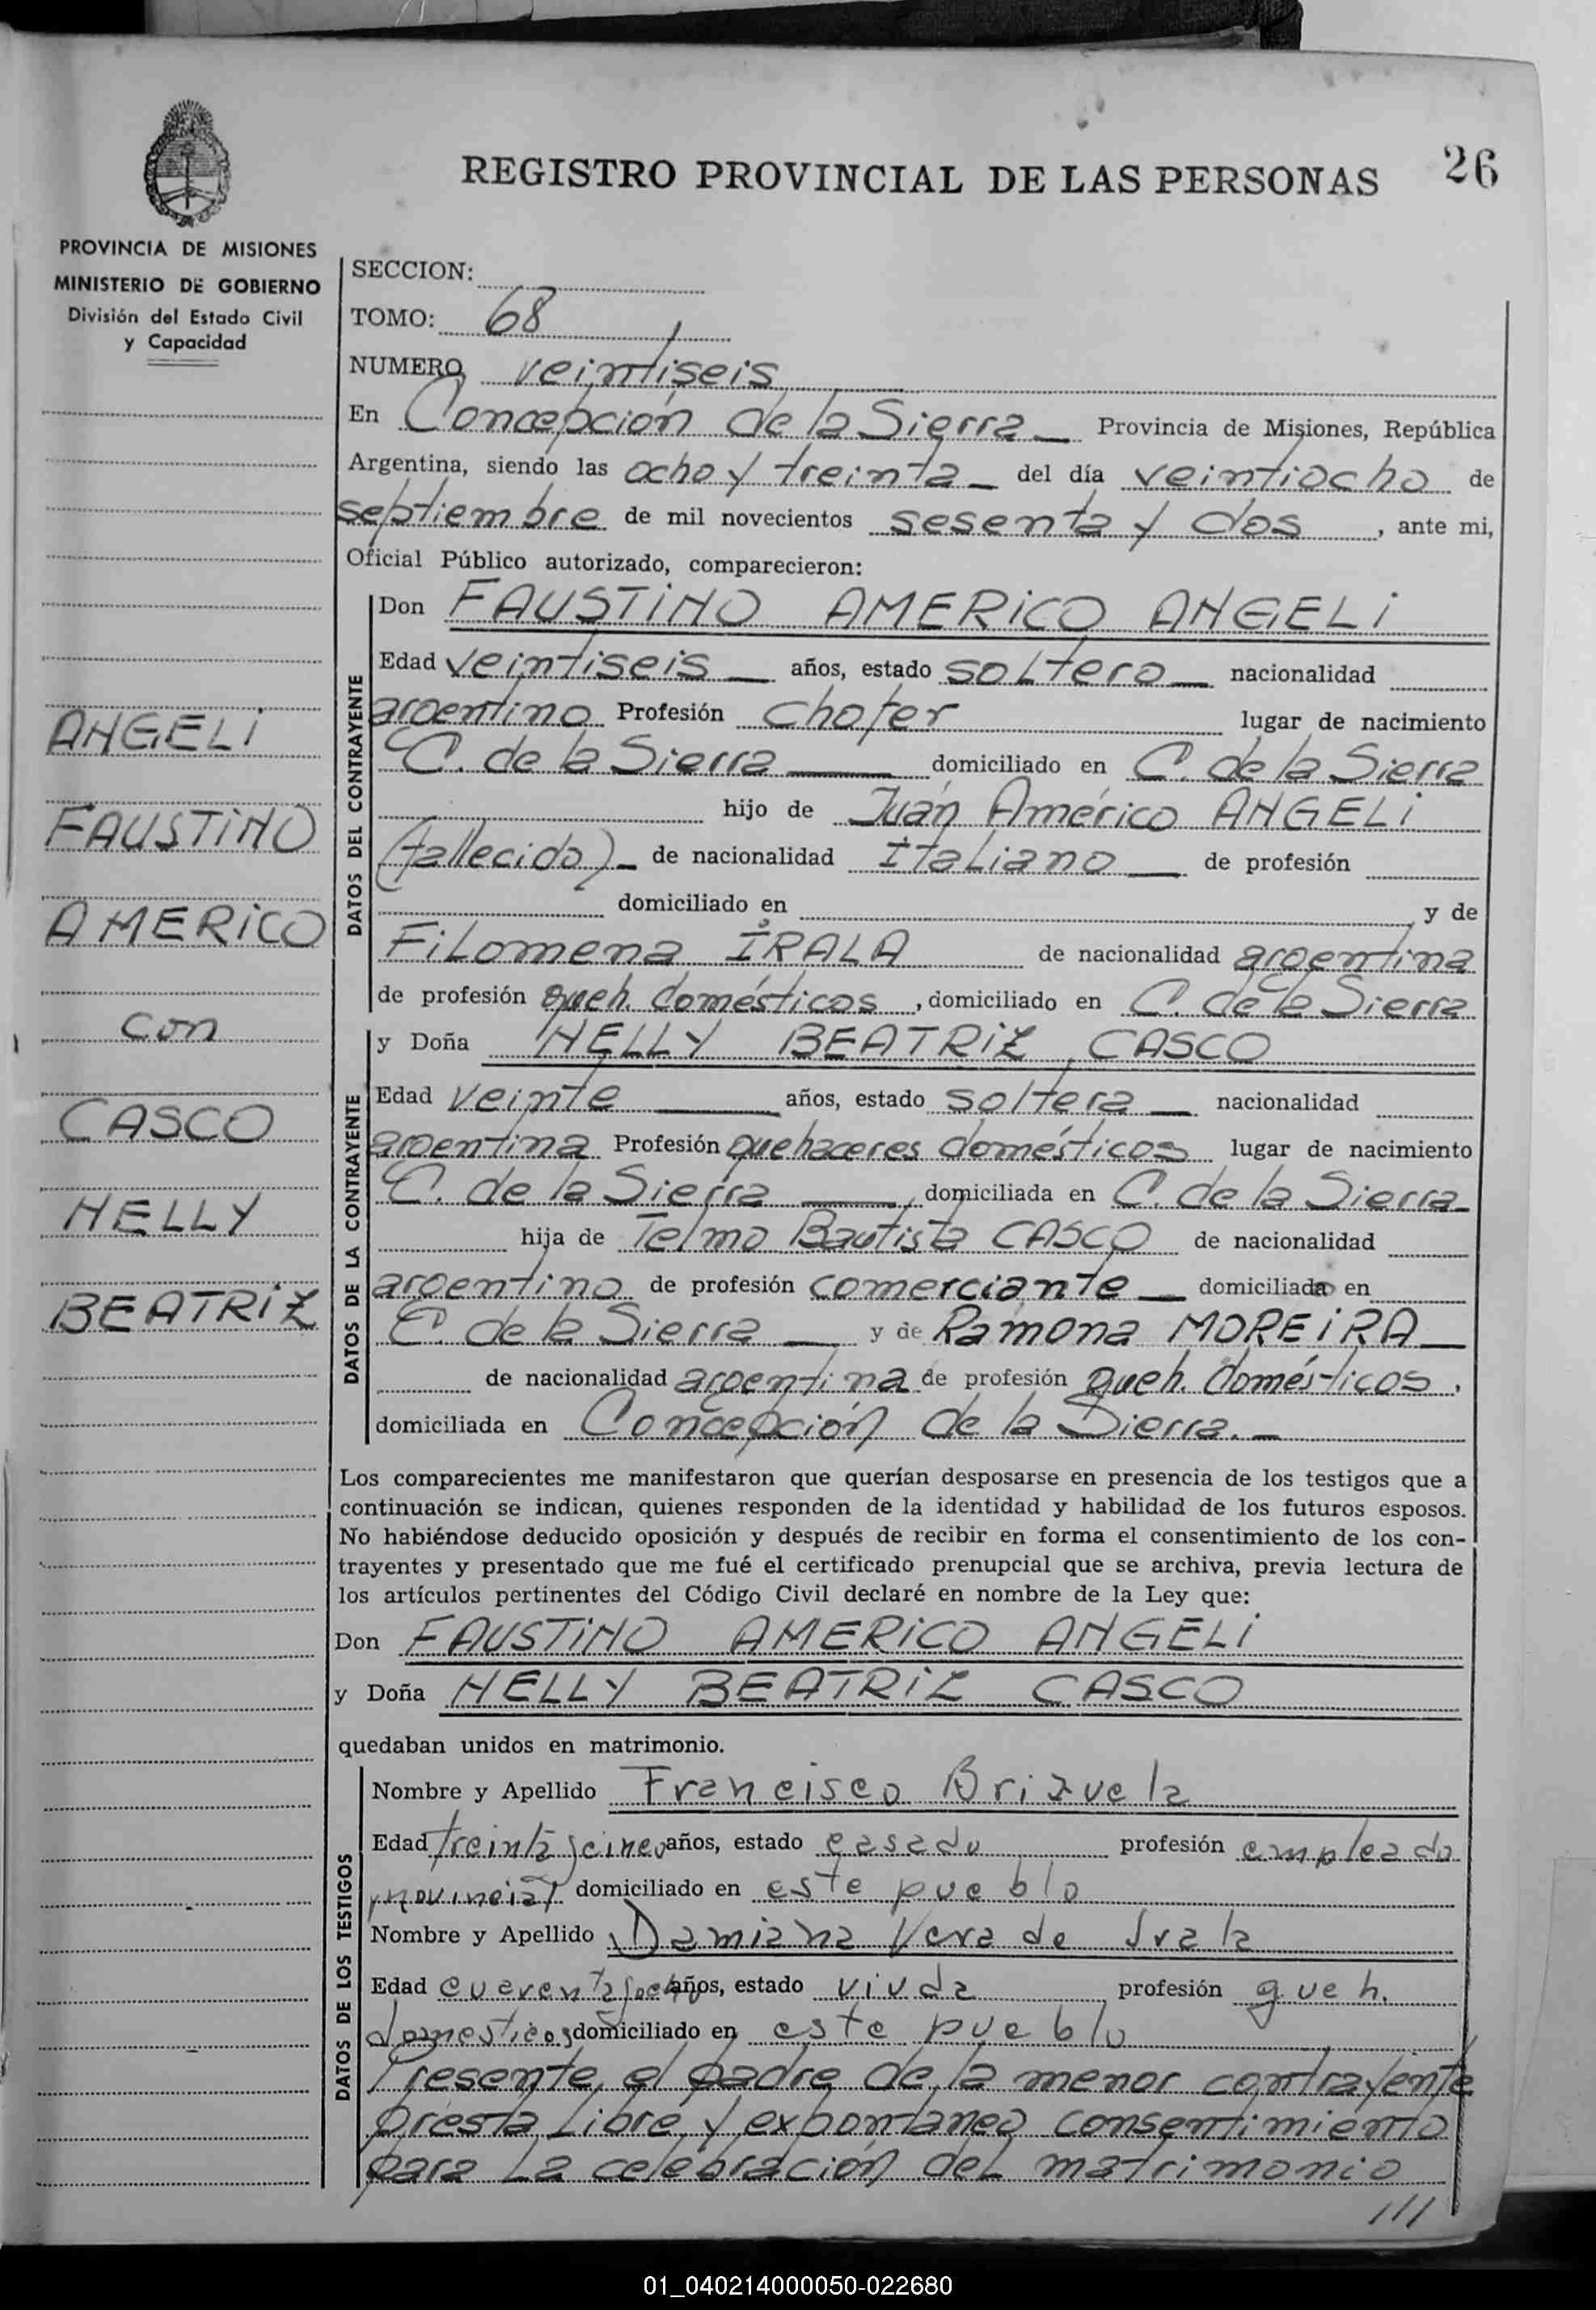 REGISTRO PROVINCIAL DE LAS PERSONAS 26
PROVINCIA DE MISIONES
MINISTERIO DE GOBIERNO
División del Estado Civil
y Capacidad
ANGELI
FAUSTINO
AMERICO
con
CASCO
NELLY
BEATRIZ
SECCION:
TOMO: 68
NUMERO veintiseis
En Concepción de la Sierra Provincia de Misiones, República
Argentina, siendo las ocho y treinta del día veintiocho de
septiembre de mil novecientos sesenta y dos, ante mi,
Oficial Público autorizado, comparecieron:
DATOS DEL CONTRAYENTE
Don FAUSTINO AMERICO ANGELI
Edad veintiseis años, estado soltero nacionalidad
argentino Profesión chofer lugar de nacimiento
C. de la Sierra domiciliado en C. de la Sierra
hijo de Juán Américo ANGELI
(fallecido) de nacionalidad Italiano de profesión
domiciliado en y de
Filomena IRALA de nacionalidad argentina
de profesión queh. domésticos, domiciliado en C. de la Sierra
DATOS DE LA CONTRAYENTE
y Doña NELLY BEATRIZ CASCO
Edad veinte años, estado soltera nacionalidad
argentina Profesión quehaceres domésticos lugar de nacimiento
C. de la Sierra, domiciliada en C. de la Sierra
hija de Telmo Bautista CASCO de nacionalidad
argentino de profesión comerciante domiciliado en
C. de la Sierra y de Ramona MOREIRA
de nacionalidad argentina de profesión queh. domésticos,
domiciliada en Concepción de la Sierra.
Los comparecientes me manifestaron que querían desposarse en presencia de los testigos que a
continuación se indican, quienes responden de la identidad y habilidad de los futuros esposos.
No habiéndose deducido oposición y después de recibir en forma el consentimiento de los con-
trayentes y presentado que me fué el certificado prenupcial que se archiva, previa lectura de
los artículos pertinentes del Código Civil declaré en nombre de la Ley que:
Don FAUSTINO AMERICO ANGELI
y Doña NELLY BEATRIZ CASCO
quedaban unidos en matrimonio.
DATOS DE LOS TESTIGOS
Nombre y Apellido Francisco Brizuela
Edad treinta y cinco años, estado casado profesión empleado
provincial domiciliado en este pueblo
Nombre y Apellido Damiana Vera de Irala
Edad cuarenta y ocho años, estado viuda profesión queh.
domesticos domiciliado en este pueblo
Presente el padre de la menor contrayente
presta libre y expontaneo consentimiento
para la celebración del matrimonio
///
01_040214000050-022680